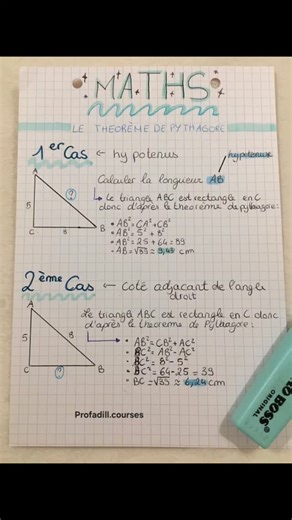 MATHS
LE THEORÈME DE PYTHAGORE
1er Cas ← hypotenus
hypotenuse
Calculer la longueur AB
A
5
C
8
B
?
Le triangle ABC est rectangle en C
donc d'après le theoreme de pythagore:
• AB² = CA² + CB²
• AB² = 5² + 8²
• AB² = 25 + 64 = 89
- AB = √89 ≈ 9,43 cm
2ème Cas ← Coté adjacant de l'angle
droit
Le triangle ABC est rectangle en C donc
d'après le theoreme de Pythagore:
A
5
8
C
?
B
• AB² = CB² + AC²
• BC² = AB² - AC²
• BC² = 8² - 5²
• BC² = 64 - 25 = 39
• BC = √39 ≈ 6,24 cm
Profadill.courses
BOSS
ORIGINAL